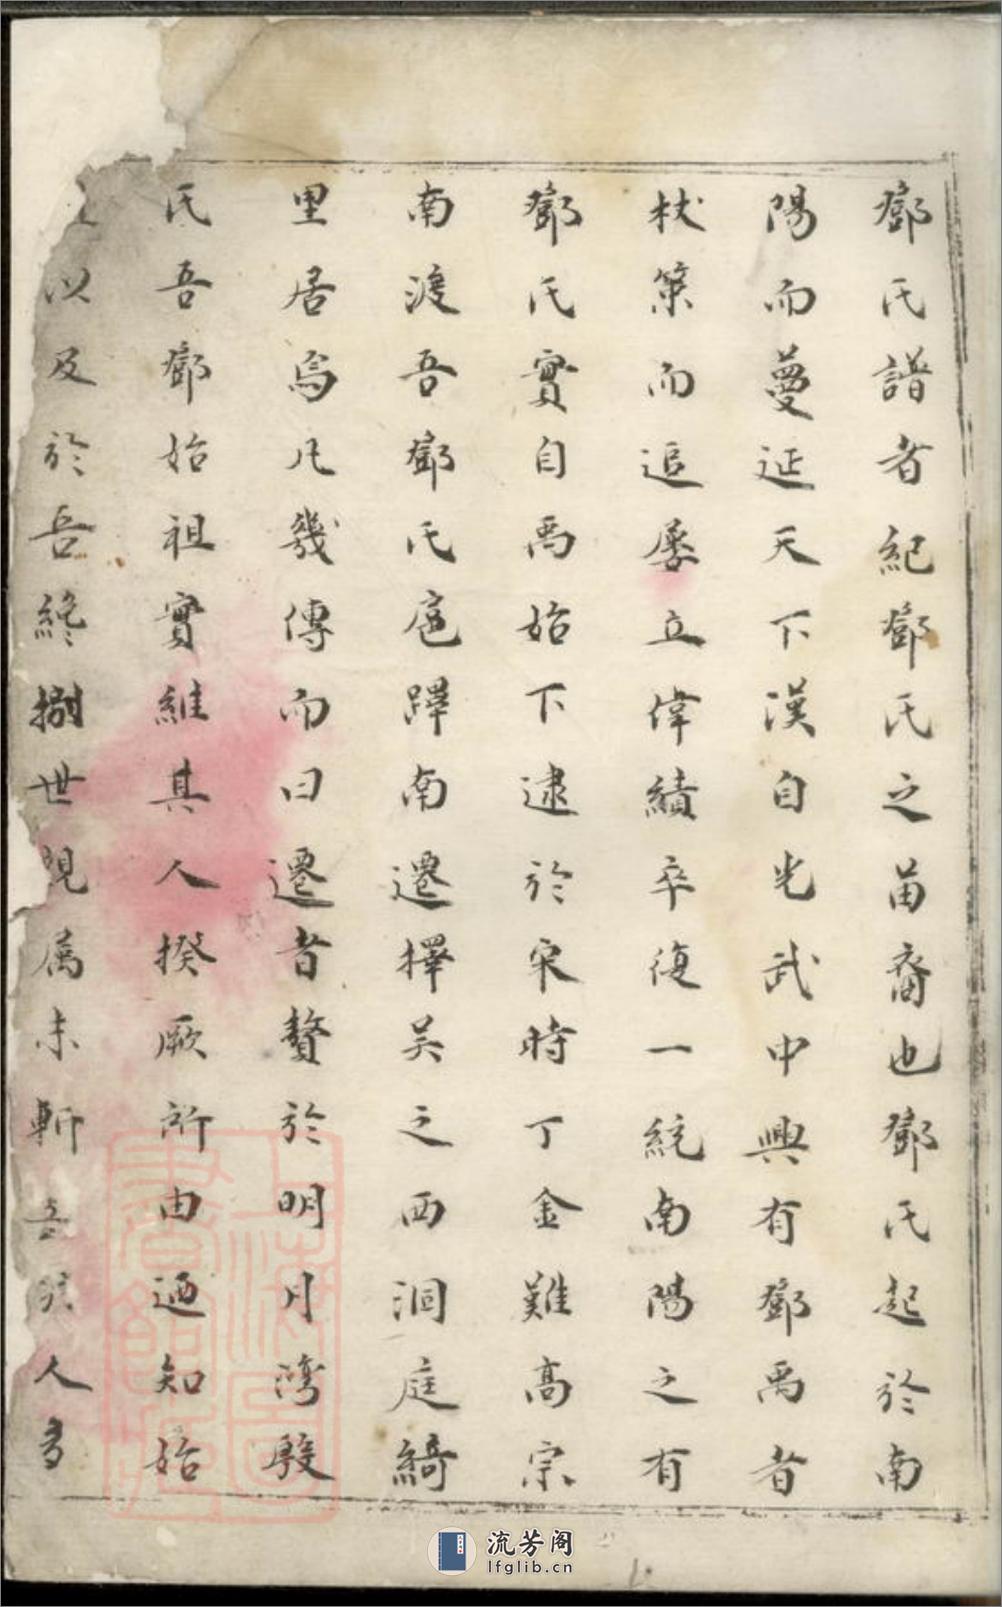 鄧氏譜者紀鄧氏之苗裔也鄧氏起於南
陽而蔓延天下漢自光武中興有鄧禹者
杖策而追孱立偉績卒復一統南陽之有
鄧氏實自禹始下逮於宋時丁金難高宗
南渡吾鄧氏扈蹕南遷擇吴之西洞庭綺
里居焉凡幾傳而曰遷者贅於明月灣殷
氏吾鄧始祖實維其人揆厥所由迺知始
以及於吾終捌世現属未斬人
上海圖書館藏
流芳阁
lfglib.cn